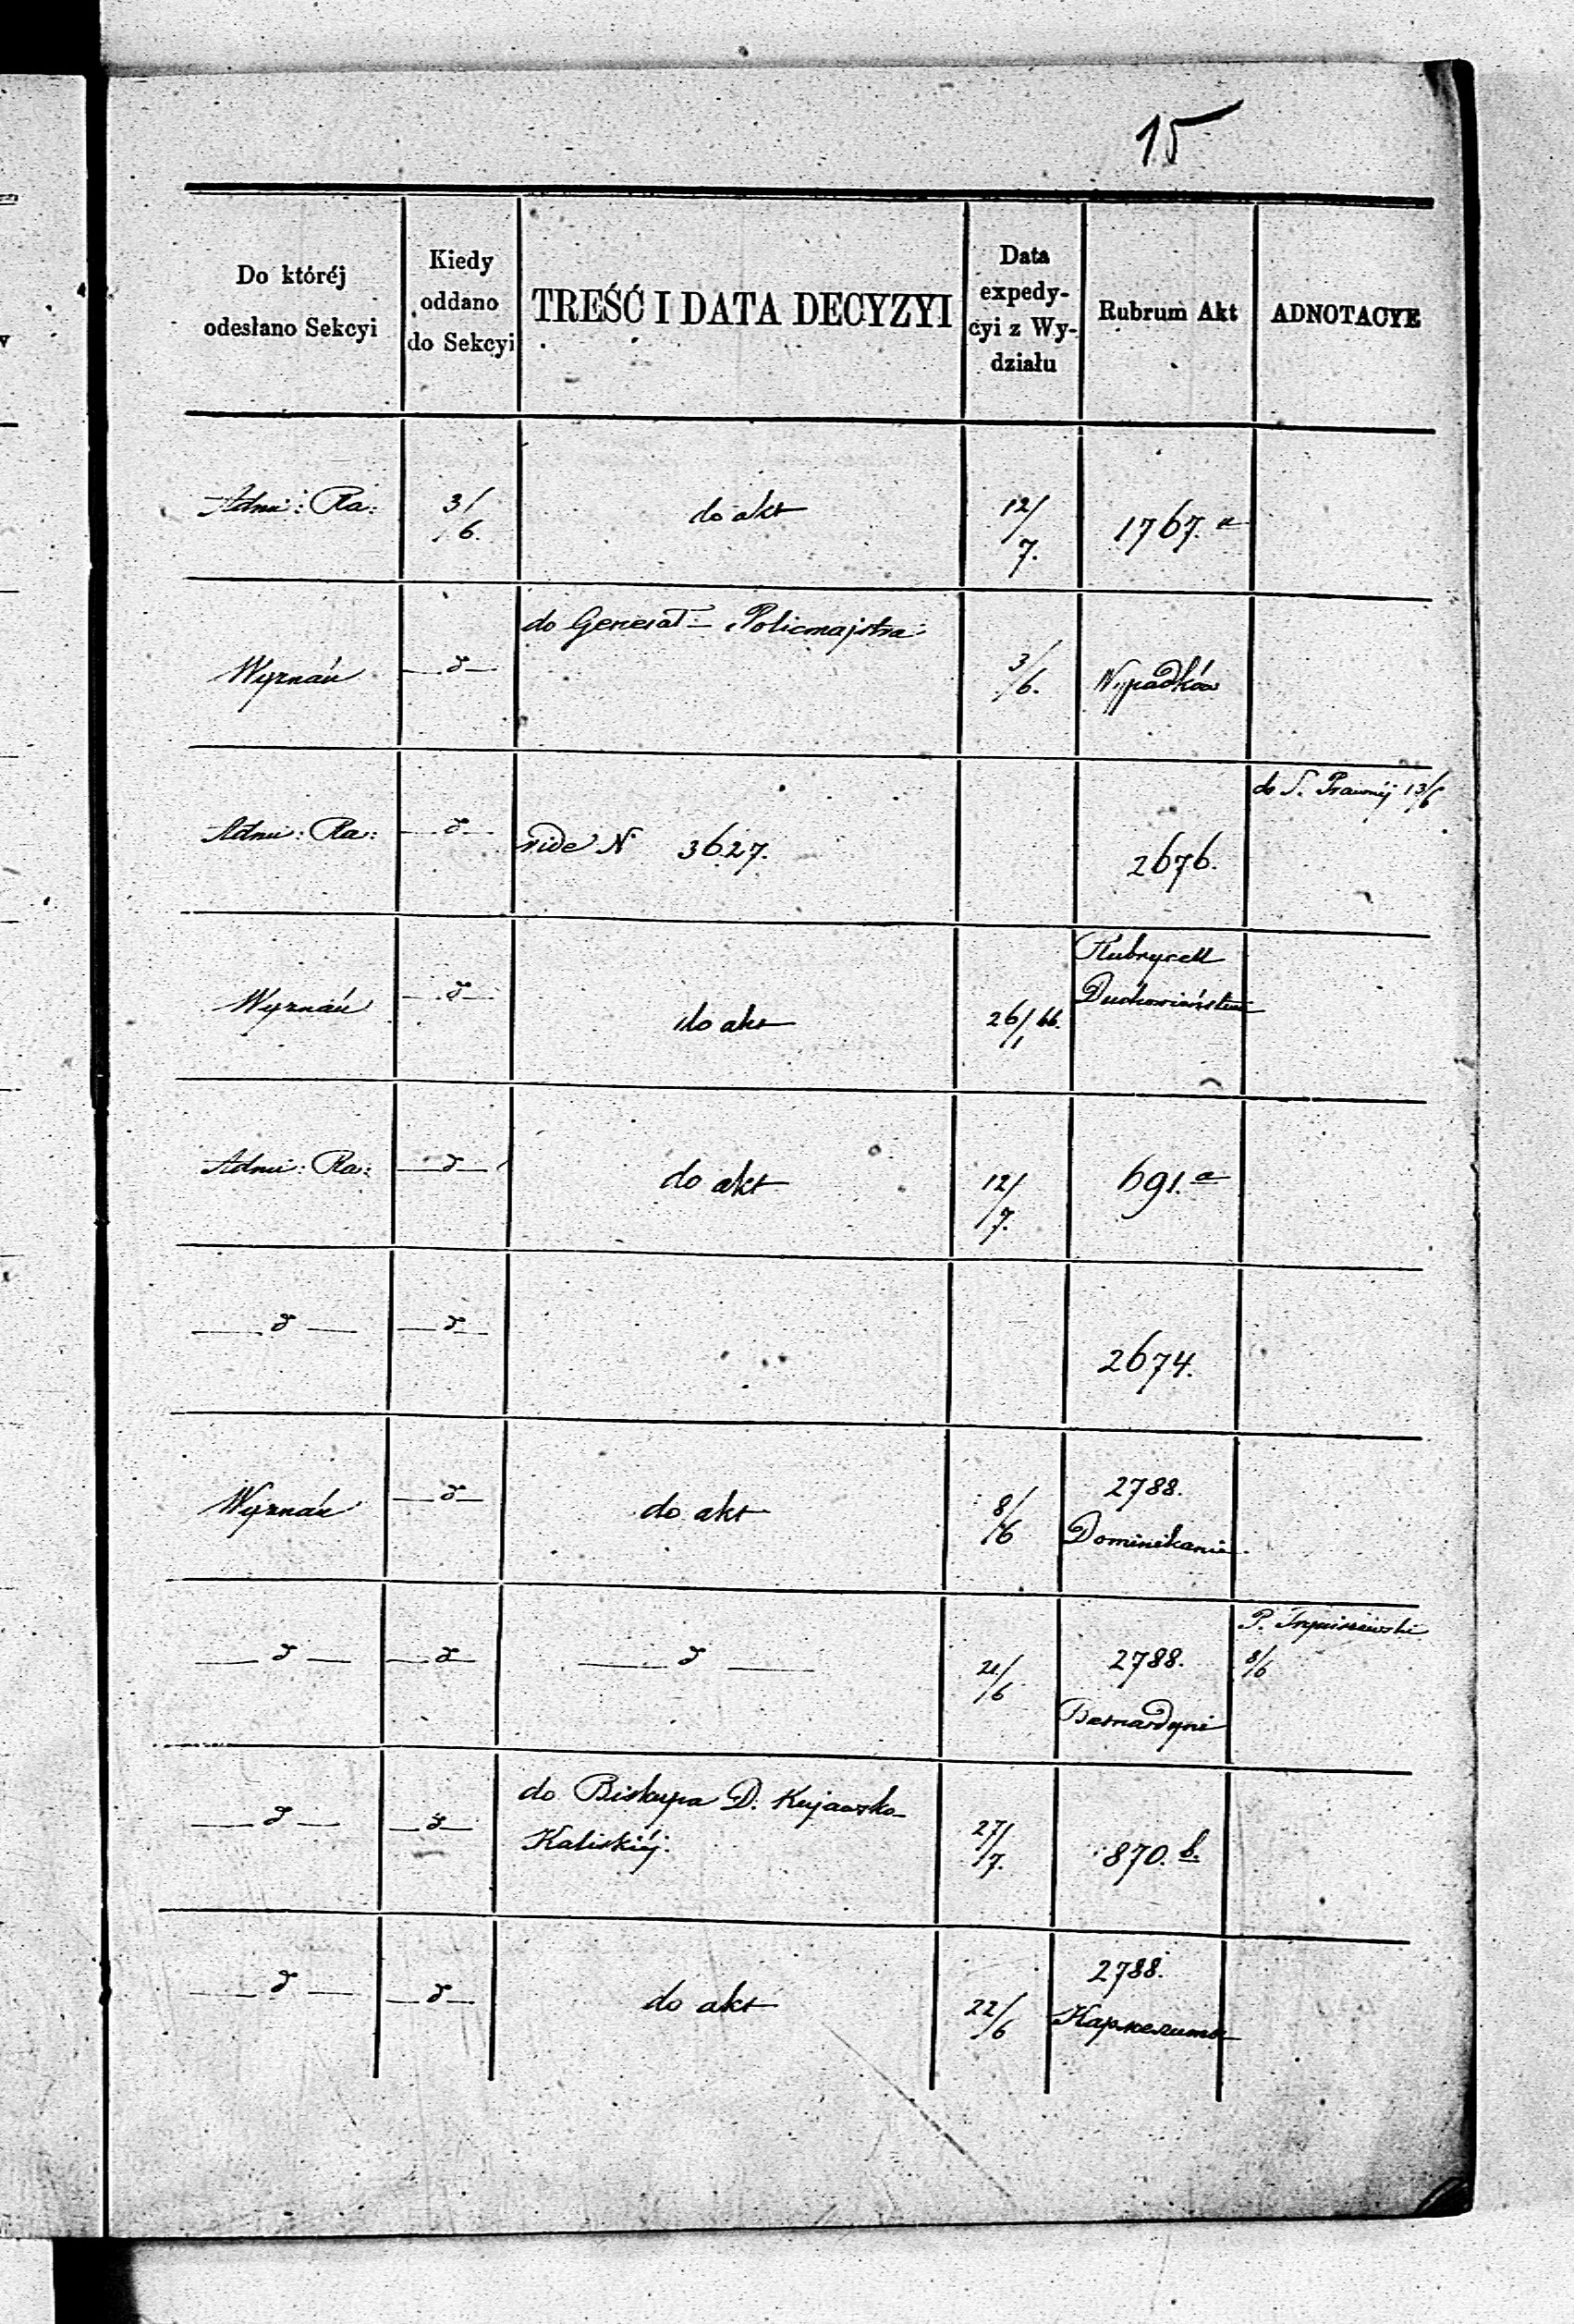 15
Do któréj
odesłano Sekcyi
Kiedy
oddano
do Sekcyi
TREŚĆ I DATA DECYZYI
Data
expedy-
cyi z Wy-
działu
Rubrum Akt
ADNOTACYE
Admi: Ra:
3/6.
do akt
12/7.
1767. a
Wyznań
d
do Generał - Policmajstra
3/6.
Wypadków
Admi: Ra:
d
vide N 3627.
2676.
do S. Prawnéj 13/6
Wyznań
d
do akt
26/1 66.
Rubrycell
Duchowieństwa
Admi: Ra:
d
do akt
12/7.
691. a
d
d
2674.
Wyznań
d
do akt
8/6
2788.
Dominikanie
d
d
d
21/6
2788.
Bernardyni
P.
8/6
d
d
do Biskupa D. Kujawsko-
Kaliskiéj.
27/7.
870. b.
d
d
do akt
22/6
2788.
Кармелиты